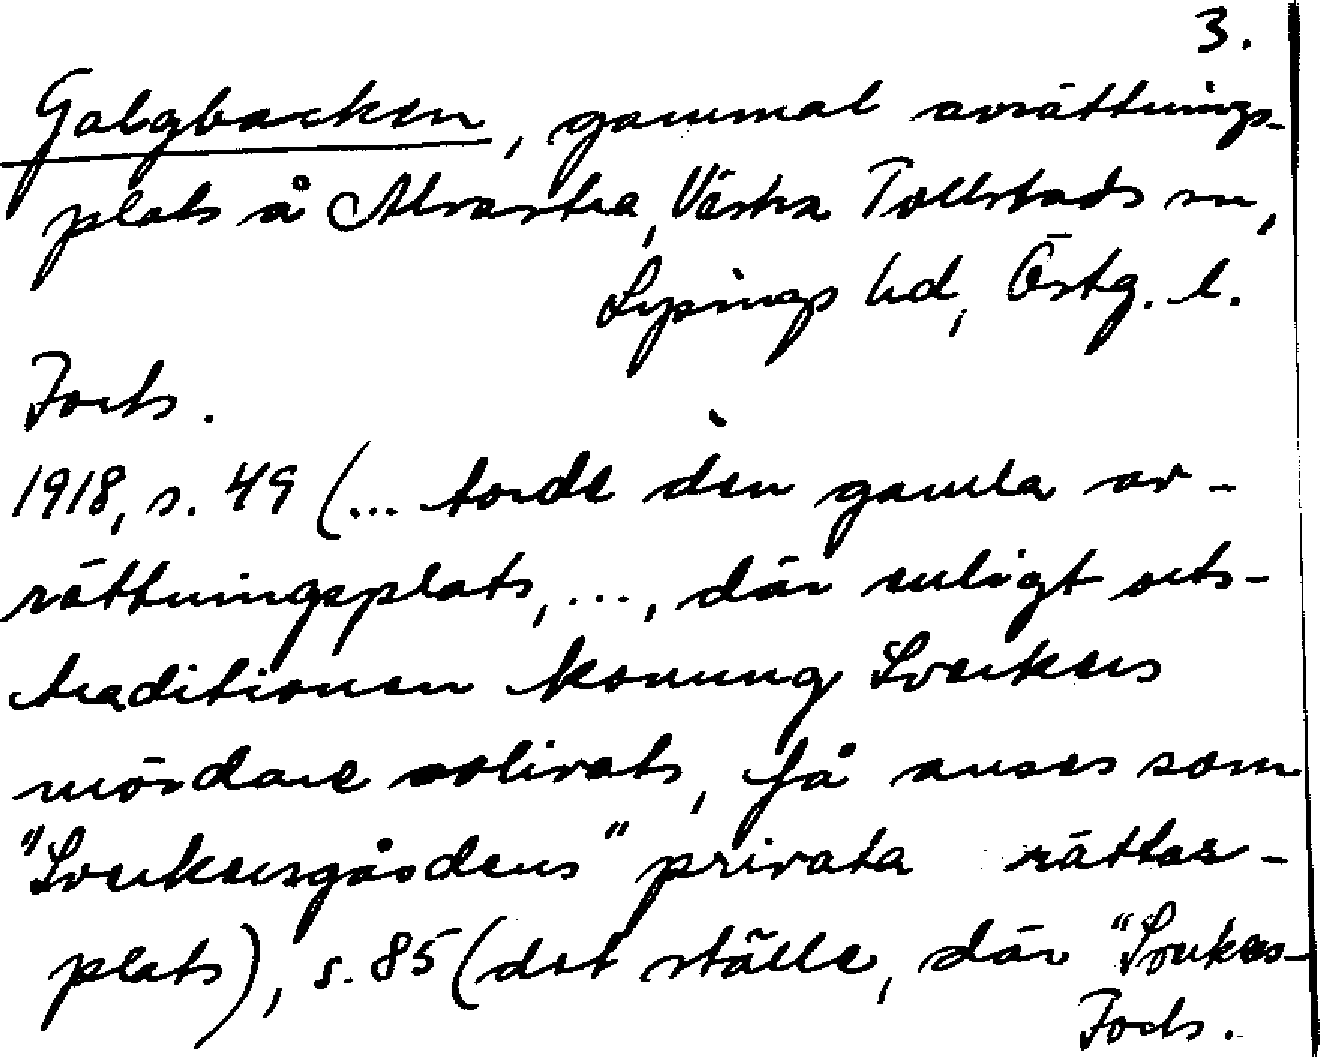 3.
Galgbacken, gammal avrättnings-
plats å Alvastra, Västra Tollstads sn,
Lysings hd, Östg. l.
Forts.
1918, s. 49 (... torde den gamla av-
rättningsplats, ..., där enligt orts-
traditionen konung Sverkers
mördare avlivats, få anses som
"Sverkersgårdens" privata rättar-
plats), s. 85 (det ställe, där "Sverkers-
Forts.